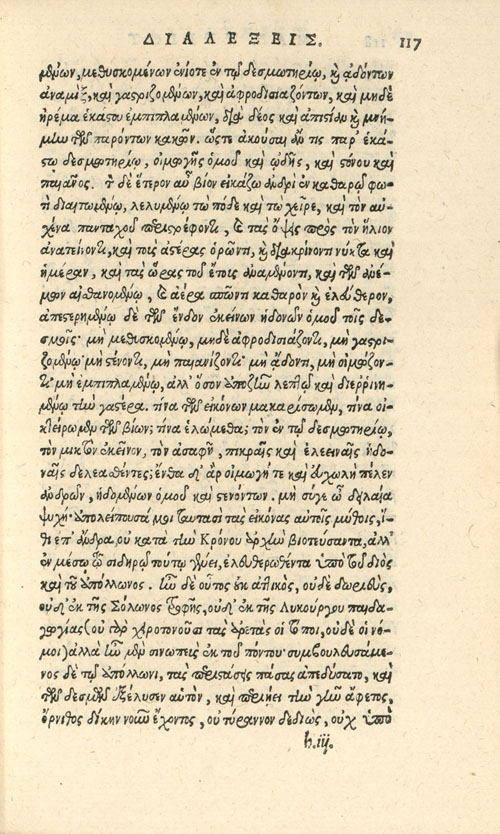 ΔΙΑΛΕΞΕΙΣ. 117
μένων, μεθυσκομένων ἐνίοτε ἐν τῷ δεσμωτηρίῳ, καὶ ᾀδόντων
ἀναμὶξ, καὶ γαστριζομένων, καὶ ἀφροδισιαζόντων, καὶ μηδὲ
ἠρέμα ἑκάστου ἐμπιπλαμένων, διὰ δέος καὶ ἀπιστίαν καὶ μνή-
μην τῶν παρόντων κακῶν. ὥστε ἀκούσαι ἄν τις παρ' ἑκά-
στῳ δεσμωτηρίῳ, οἰμωγῆς ὁμοῦ καὶ ᾠδῆς, καὶ στόνου καὶ
παιᾶνος. τὸν δὲ ἕτερον αὖ βίον εἰκάζω ἀνδρὶ ἐν καθαρῷ φω-
τὶ διαιτωμένῳ, λελυμένῳ τὼ πόδε καὶ τὼ χεῖρε, καὶ τὸν αὐ-
χένα πανταχοῦ περιστρέφοντι, καὶ τὰς ὄψεις πρὸς τὸν ἥλιον
ἀνατείνοντι, καὶ τοὺς ἀστέρας ὁρῶντι, καὶ διακρίνοντι νύκτα καὶ
ἡμέραν, καὶ τὰς ὥρας τοῦ ἔτους ἀναμένοντι, καὶ τῶν ἀνέ-
μων αἰσθανομένῳ, καὶ ἀέρα σπῶντι καθαρὸν καὶ ἐλεύθερον,
ἀπεστερημένῳ δὲ τῶν ἔνδον ἐκείνων ἡδονῶν ὁμοῦ τοῖς δε-
σμοῖς· μὴ μεθισκομένῳ, μηδὲ ἀφροδισιάζοντι, μὴ γαστρι-
ζομένῳ· μὴ στένοντι, μὴ παιανίζοντι· μὴ ᾄδοντι, μὴ οἰμώζον-
τι· μὴ ἐμπιπλαμένῳ, ἀλλ' ὅσον ὑποζῆν λεπτῷ καὶ διερρινη-
μένῳ τὴν γαστέρα. τίνα τῶν εἰκόνων μακαρίσωμεν, τίνα οἰ-
κτείρωμεν τῶν βίων; τίνα ἑλώμεθα; τὸν ἐν τῷ δεσμωτηρίῳ,
τὸν μικτὸν ἐκεῖνον, τὸν ἀσαφῆ, πικραῖς καὶ ἐλεειναῖς ἡδο-
ναῖς δελεασθέντες; ἔνθα δ' ἄρ' οἰμωγή τε καὶ εὐχωλὴ πέλεν
ἀνδρῶν, ἡδομένων ὁμοῦ καὶ στενόντων. μὴ σύγε ὦ δειλαία
ψυχή· ἀπολειποῦσά μοι ταυτασὶ τὰς εἰκόνας αὐτοῖς μύθοις, ἴ-
θι ἐπ' ἄνδρα, οὐ κατὰ τὴν Κρόνου ἀρχὴν βιοτεύσαντα, ἀλλ'
ἐν μέσῳ τῷ σιδηρῷ τούτῳ γένει, ἐλευθερωθέντα ὑπὸ τοῦ διὸς
καὶ τοῦ ἀπόλλωνος. ἦν δὲ οὗτος οὐκ ἀττικὸς, οὐδὲ δωριεὺς,
οὐδ' ἐκ τῆς Σόλωνος τροφῆς, οὐδ' ἐκ τῆς Λυκούργου παιδα-
γωγίας (οὐ γὰρ χειροτονοῦσι τὰς ἀρετὰς οἱ τόποι, οὐδὲ οἱ νό-
μοι) ἀλλὰ ἦν μὲν σινωπεὺς ἐκ τοῦ πόντου· συμβουλευσάμε-
νος δὲ τῷ ἀπόλλωνι, τὰς περιστάσεις πάσας ἀπεδύσατο, καὶ
τῶν δεσμῶν ἐξέλυσεν αὑτὸν, καὶ περιῄει τὴν γῆν ἄφετος,
ὄρνιθος δίκην νοῦν ἔχοντος, οὐ τύραννον δεδιὼς, οὐχ ὑπὸ
h.iij.